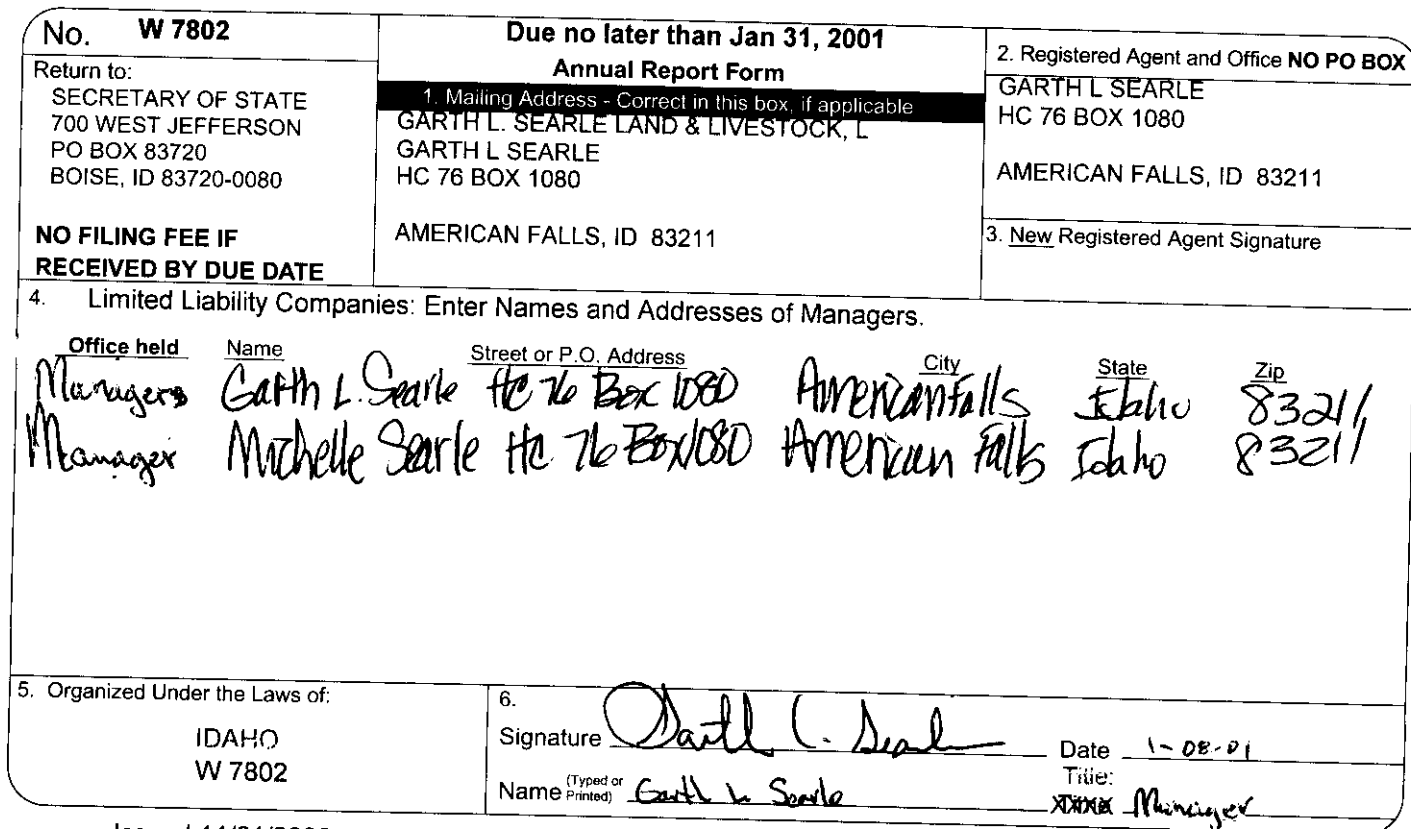 No. W 7802
Return to:
SECRETARY OF STATE
700 WEST JEFFERSON
PO BOX 83720
BOISE, ID 83720-0080
NO FILING FEE IF
RECEIVED BY DUE DATE
Due no later than Jan 31, 2001
Annual Report Form
1. Mailing Address - Correct in this box, if applicable
GARTH L. SEARLE LAND & LIVESTOCK, L
GARTH L SEARLE
HC 76 BOX 1080
AMERICAN FALLS, ID 83211
2. Registered Agent and Office NO PO BOX
GARTH L SEARLE
HC 76 BOX 1080
AMERICAN FALLS, ID 83211
3. New Registered Agent Signature
4. Limited Liability Companies: Enter Names and Addresses of Managers.
Office held Name Street or P.O. Address City State Zip
Managers Garth L. Searle Hc 76 Box 1080 American Falls Idaho 83211
Manager Michelle Searle Hc 76 Box 1080 American Falls Idaho 83211
5. Organized Under the Laws of:
IDAHO
W 7802
6.
Signature Garth L. Searle Date 1-08-01
Name (Typed or Printed) Garth L Searle Title: Manager